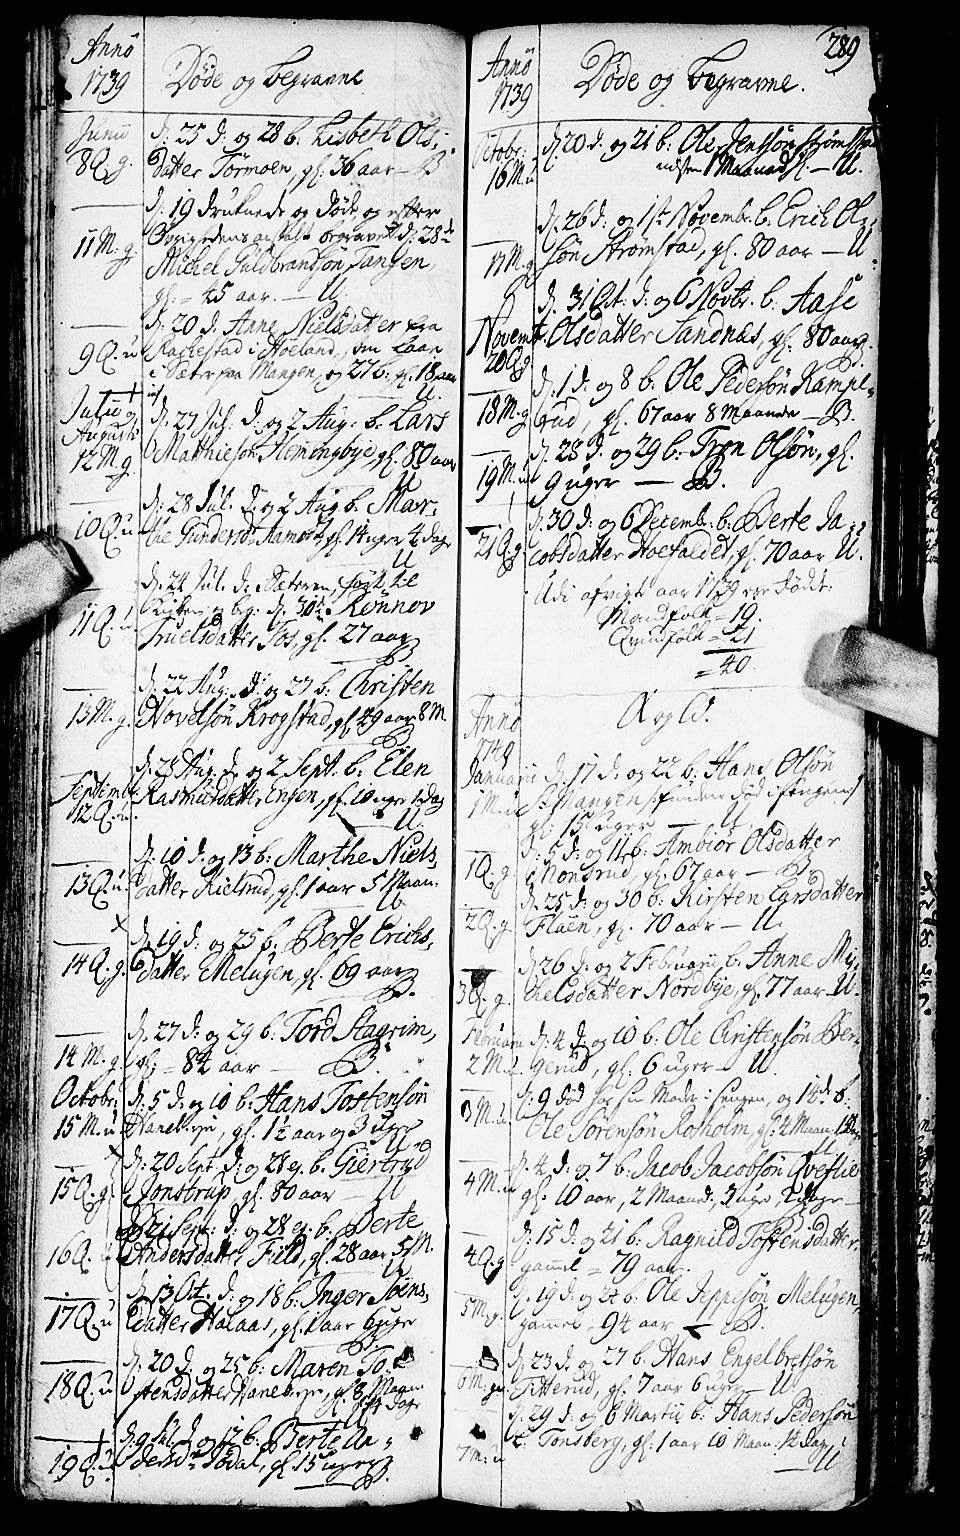 Anno
1739
Døde og begravne
Junii
8 Q. g.
d: 25 d: og 28 b: Lisbeth Ols,
datter Tormoen, gl. 36 aar — B
11 M. g.
d: 19 druknede og døde og efter
Øvrighedens anstalt begravet d. 28de
Michel Guldbrandsøn Tangen
gl: = 45 aar. — U
9 Q. u
d: 20 d: Anne Nielsdatter fra
Rachestad i Høeland, om Laan
i Sæter paa Mangen, og 27 b: gl. 18 aar
U.
Julii og
Augusti
12 M. g.
d: 27 Jul. d: og 2 Aug. b. Lars
Matthiesøn Hemingbye, gl. 80 aar
U
10 Q. u.
d: 28 Jul. d. og 2 Aug b. Mar,
the Gundersd: Aamot, gl. 14 uger 4 dage
U
11 Q. u.
d: 24 Jul. d. Sæteren, ført til
Kirken og beg: d. 30te Rønnov
Truelsdatter Fos, gl. 27 aar
B
13 M. g.
d: 22 Aug. d: og 27 b: Christen
Novelsøn Krogstad, gl. 49 aar 8 M.
B
Septembr.
12 Q. u.
d: 28 Aug. d. og 2 Sept. b. Elen
Rasmusdatter Engen, gl. 10 uger 1 dag
— U.
13 Q. u.
d: 10 d: og 13 b: Marthe Niels,
datter Kielsrud, gl. 1 aar 5 Maan.
U
14 Q. g.
d. 19 d: og 25 b: Berte Erichs,
datter Melugen, gl. 69 aar
B.
14 M. g
d: 27 d: og 29 b: Tord Stagrim,
gl: = 84 aar — B.
Octobr:
15 M. u
d: 5 d: og 10 b: Hans Tostensøn
Hanebye, gl. 1½ aar og 3 uger
U
15 Q. g
d: 20 Sept d: og 28 ej. b. Giertrud
Jonstrup, gl. 80 aar — U
16 Q.
d: 21 Sept: d: og 28 ej. b: Berte
Andersdatter Field, gl. 28 aar 5 M.
17 Q. u
d: 13 Oct. d: og 18 b: Inger Joens,
datter Halaas, gl. 1 aar 6 uger
B
18 Q. u
d. 20 d: og 25 b: Maren To,
stensdatter Hanebye, gl. 8 Maan
14 dage
U
19 Q. u.
d: 9 Jul d. og 12 b: Berte An,
dersd: Sødal, gl. 15 uger
B.
289
Anno
1739
Døde og begravne.
Octobr:
16 M. u
d. 20 d: og 21 b: Ole Jensøn Strømsta
neisten 1 Maaned gl — U.
17 M. g
d. 26 d. og 1ste Novembr. b. Erich Ol,
søn Strømstad, gl. 80 aar — U
Novembr
20 Q g
d. 31 Oct: d: og 6 Novbr. b. Aase
Olsdatter Sandnæs, gl. 80 aar.
B.
18 M. g
d. 1 d: og 8 b: Ole Pedersøn Kampe,
rud, gl. 67 aar 8 Maaneder — B.
19 M. u
d. 28 d. og 29 b: Tron Olsøn, gl.
9 uger — B.
21 Q. g.
d. 30 d: og 6 Decembr. b. Berte Ja,
cobsdatter Hoefaldet, gl. 70 aar U.
Udi afvigte aar 1739 ere Døde
Mandfolk = 19.
Qvindfolk = 21
= 40.
Anno
1740
A og D.
Januarii
1 M. u
d. 17 d. og 22 b: Hans Olsøn
St. Mangen (: funden død i sengen:)
gl. 15 uger — U.
1 Q. g.
d: 5 d: og 11 b: Ambiør Olsdatter
Monsrud, gl. 67 aar — B.
2 Q. g.
d: 25 d: og 30 b: Kirsten Larsdatter
Flaen, gl. 70 aar — U.
3 Q. g.
d 26 d: og 2 Februarii b. Anne Mi,
chelsdatter Nordbye, gl. 77 aar U.
Februarii
2 M. u.
d. 4 d: og 10 b: Ole Christensøn Ber,
gerud, gl. 6 uger — U.
3 M. u.
d. 9 død hos sin Moder i sengen, og 14de b:
Ole Sørensøn Rosholm, gl: 4 Maan: 1 dag
U
4 M. u
d. 4 d: og 7 b: Jacob Jacobsøn Qvestie
gl. 10 aar, 2 Maand: 3 uger, 2 dage —
4 Q. g
d: 15 d: og 21 b: Ragnild Tostensdatter,
gammel = 79 aar.
5 M. g.
d. 19 d: og 24 b: Ole Jeppesøn Melugen,
gammel = 94 aar — B.
6 M:
d. 23 d: og 27 b: Hans Engelbretsøn
Titterud, gl. 7 aar 6 uger — U.
7 M: u
d. 29 d: og 6 Martii b: Hans Pedersøn
t. Tonsberg, gl: 1 aar 10 Maan: 14 dage
— U